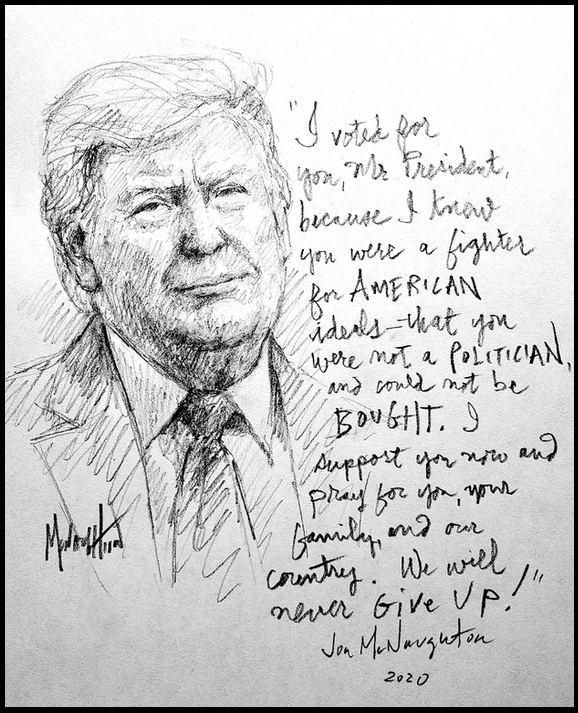 "I voted for
you, Mr. President,
because I knew
you were a fighter
for AMERICAN
ideals—that you
were not a POLITICIAN,
and could not be
BOUGHT. I
support you now and
pray for you, your
family, and our
country. We will
never GIVE UP!"
Jon McNaughton
2020
McNaughton